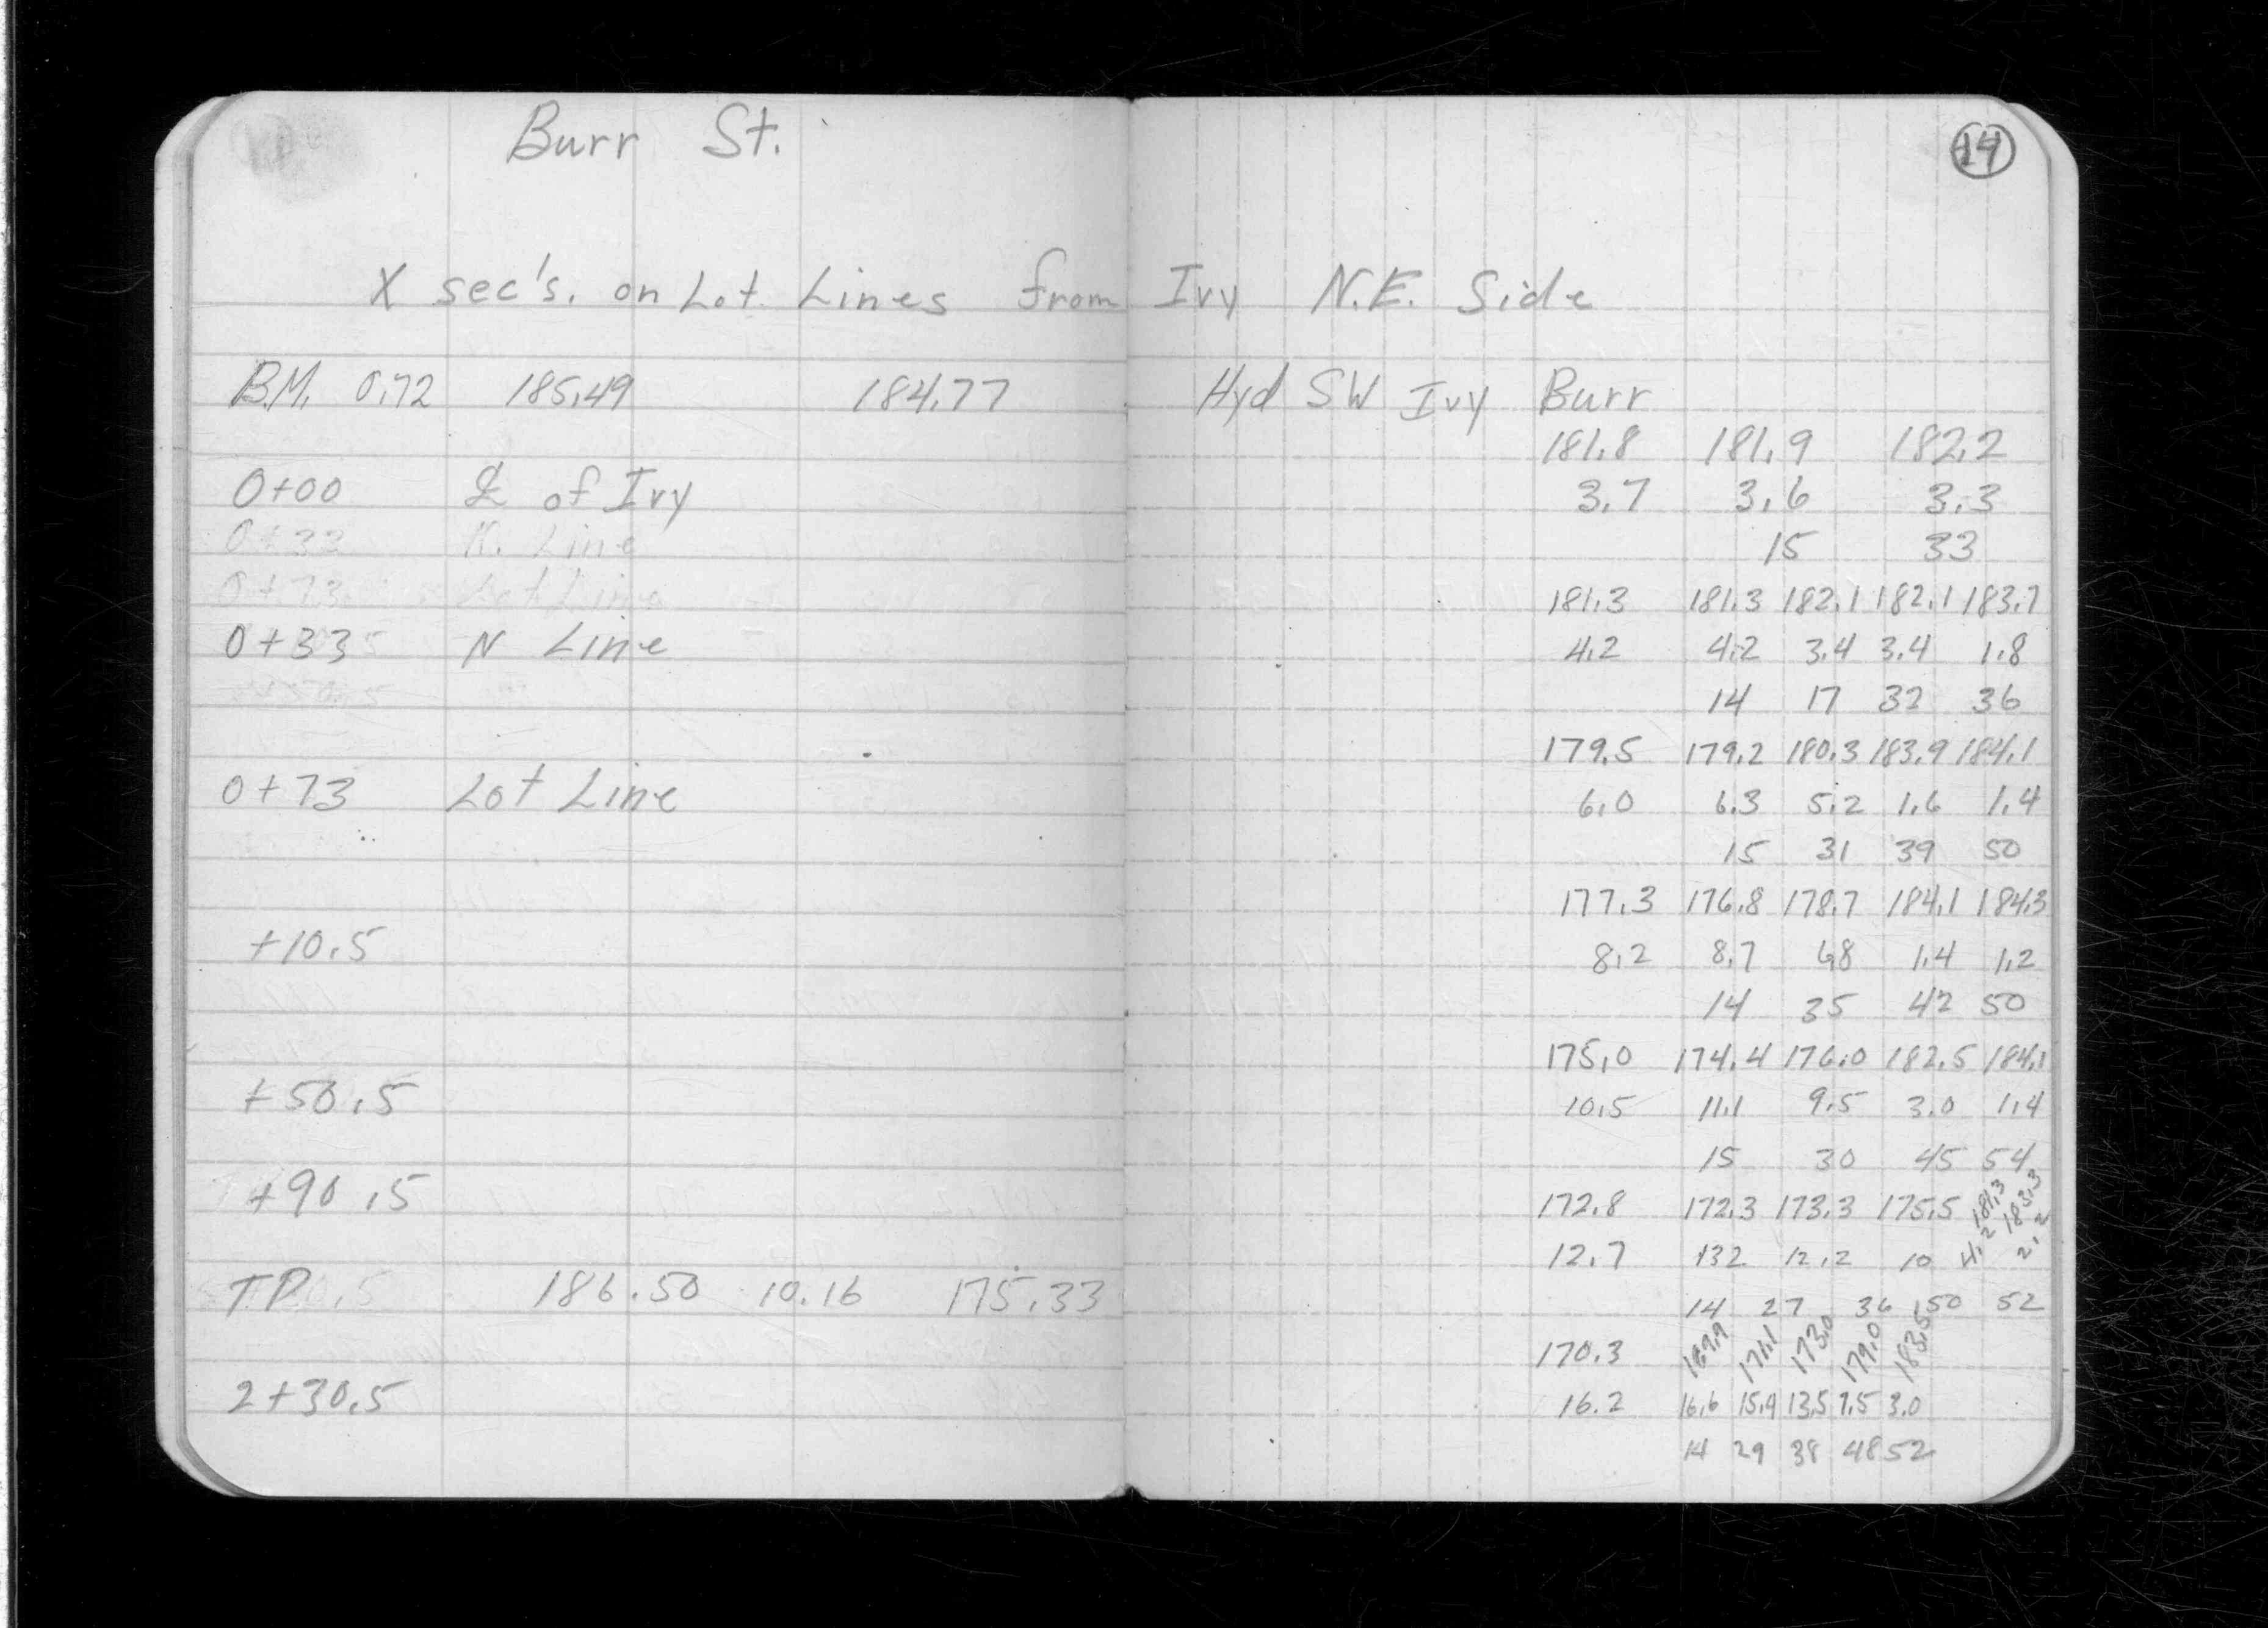 14
Burr St.
X sec's. on Lot Lines from Ivy N.E. Side
B.M. 0.72 185.49 184.77 Hyd SW Ivy Burr
181.8 181.9 182.2
0+00 ℄ of Ivy 3.7 3.6 3.3
0+33 N. Line 15 33
0+73 Lot Line 181.3 181.3 182.1 182.1 183.7
0+33 N Line 4.2 4.2 3.4 3.4 1.8
14 17 32 36
179.5 179.2 180.3 183.9 184.1
0+73 Lot Line 6.0 6.3 5.2 1.6 1.4
15 31 39 50
177.3 176.8 178.7 184.1 184.3
+10.5 8.2 8.7 6.8 1.4 1.2
14 35 42 50
175.0 174.4 176.0 182.5 184.1
+50.5 10.5 11.1 9.5 3.0 1.4
15 30 45 54
+90.5 172.8 172.3 173.3 175.5 181.3 183.3
12.7 132 12.2 10 4.2 2.2
TP 186.50 10.16 175.33 14 27 36 50 52
170.3 169.9 171.1 173.0 179.0 183.5
2+30.5 16.2 16.6 15.4 13.5 7.5 3.0
14 29 38 48 52